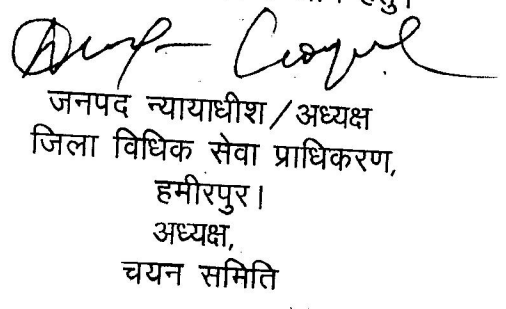 हेतु।
जनपद न्यायाधीश / अध्यक्ष
जिला विधिक सेवा प्राधिकरण,
हमीरपुर।
अध्यक्ष,
चयन समिति